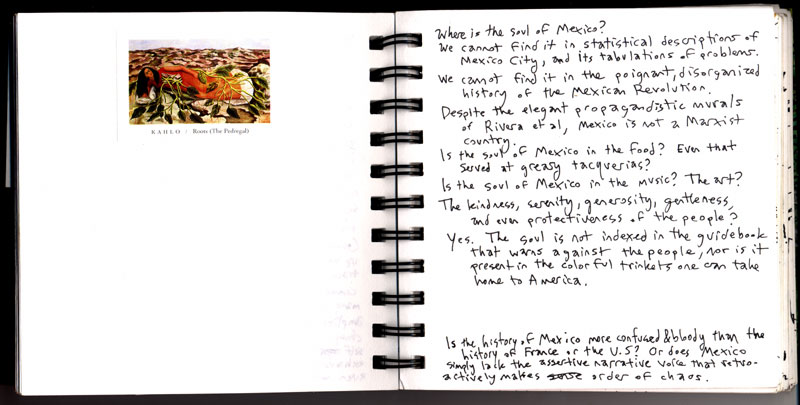 KAHLO / Roots (The Pedregal)
Where is the soul of Mexico?
We cannot find it in statistical descriptions of
Mexico City, and its tabulations of problems.
We cannot find it in the poignant, disorganized
history of the Mexican Revolution.
Despite the elegant propagandistic murals
of Rivera et al, Mexico is not a Marxist
country.
Is the soul of Mexico in the food? Even that
served at greasy tacquerias?
Is the soul of Mexico in the music? The art?
The kindness, serenity, generosity, gentleness,
and even protectiveness of the people?
Yes. The soul is not indexed in the guidebook
that warns against the people, nor is it
present in the colorful trinkets one can take
home to America.
Is the history of Mexico more confused & bloody than the
history of France or the U.S? Or does Mexico
simply lack the assertive narrative voice that retro-
actively makes order of chaos.